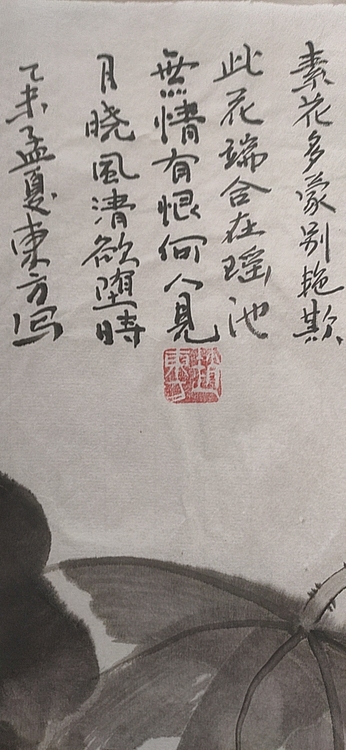 素花多蒙别艳欺
此花端合在瑶池
無情有恨何人見
月晓風清欲堕時
乙未孟夏東方写
趙東方